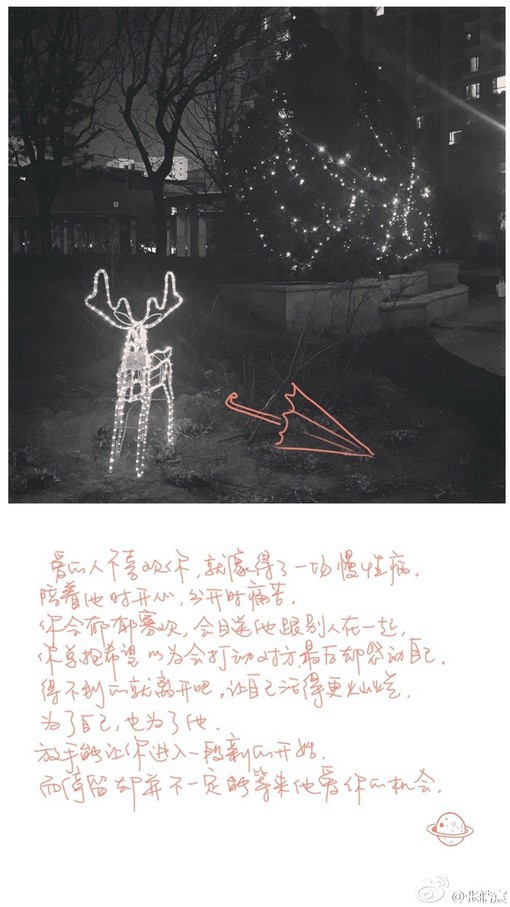 爱的人不喜欢你,就像得了一场慢性病.
陪着他时开心,分开时痛苦.
你会郁郁寡欢,会目送他跟别人在一起,
你总抱希望 以为会打动对方最后却感动自己.
得不到的就离开吧,让自己活得更灿烂.
为了自己,也为了他.
放手能让你进入一段新的开始.
而停留却并不一定能等来他爱你的机会.